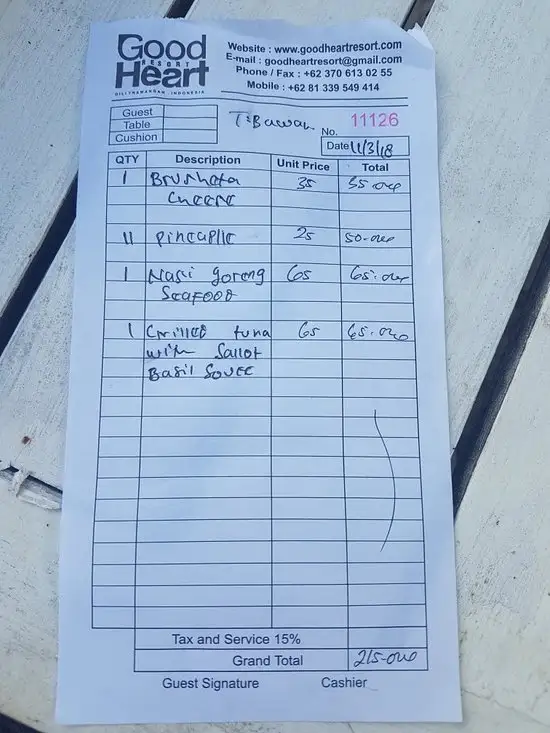 Good
RESORT
Heart
GILI TRAWANGAN . INDONESIA
Website : www.goodheartresort.com
E-mail : goodheartresort@gmail.com
Phone / Fax : +62 370 613 02 55
Mobile : +62 81 339 549 414
Guest
Table
Cushion
No. 11126
Date 11/3/18
QTY Description Unit Price Total
1 Brusheta 35 35.000
Cheese
11 Pineaplle 25 50.000
1 Nasi goreng 65 65.000
SEAFOOD
1 Grilled tuna 65 65.000
with Sallot
Basil Souce
Tax and Service 15%
Grand Total 215.000
Guest Signature Cashier